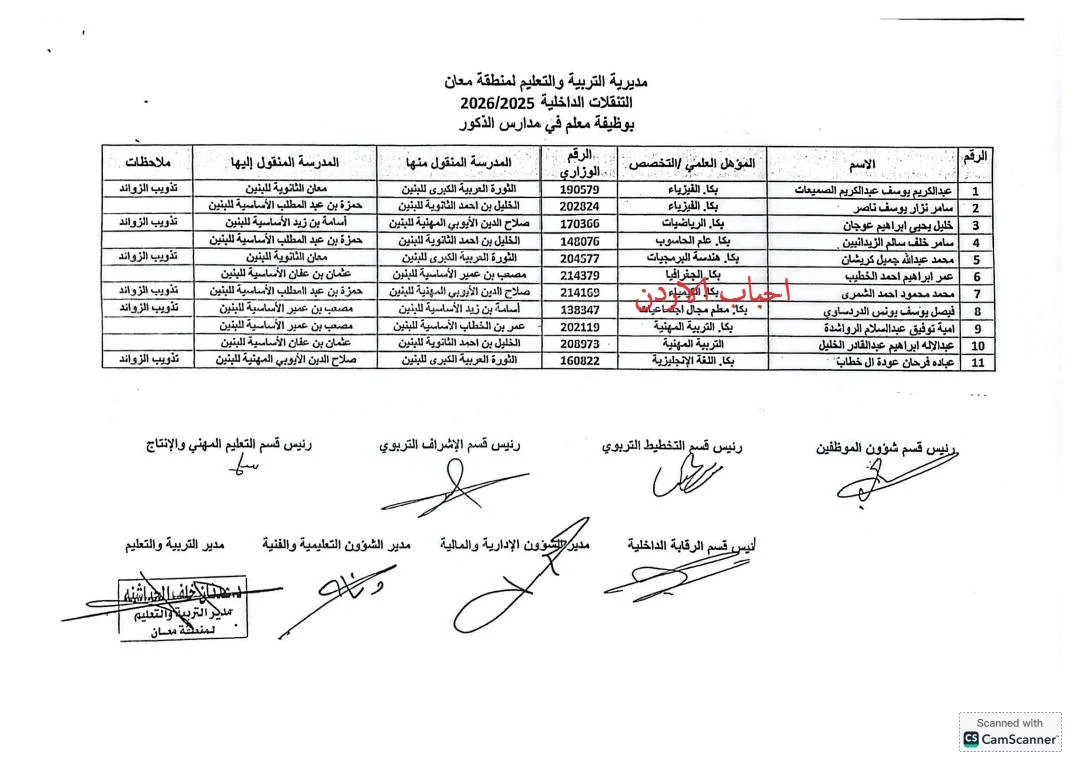 مديرية التربية والتعليم لمنطقة معان
التنقلات الداخلية 2026/2025
بوظيفة معلم في مدارس الذكور
الرقم الاسم المؤهل العلمي /التخصص الرقم الوزاري المدرسة المنقول منها المدرسة المنقول إليها ملاحظات
1 عبدالكريم يوسف عبدالكريم الصميعات بكا. الفيزياء 190579 الثورة العربية الكبرى للبنين معان الثانوية للبنين تذويب الزوائد
2 سامر نزار يوسف ناصر بكا. الفيزياء 202824 الخليل بن احمد الثانوية للبنين حمزة بن عبد المطلب الأساسية للبنين
3 خليل يحيى ابراهيم عوجان بكا. الرياضيات 170366 صلاح الدين الأيوبي المهنية للبنين أسامة بن زيد الأساسية للبنين تذويب الزوائد
4 سامر خلف سالم الزيدانيين بكا. علم الحاسوب 148076 الخليل بن احمد الثانوية للبنين حمزة بن عبد المطلب الأساسية للبنين
5 محمد عبدالله جميل كريشان بكا. هندسة البرمجيات 204577 الثورة العربية الكبرى للبنين معان الثانوية للبنين تذويب الزوائد
6 عمر ابراهيم احمد الخطيب بكا. الجغرافيا 214379 مصعب بن عمير الأساسية للبنين عثمان بن عفان الأساسية للبنين
7 محمد محمود احمد الشمرى بكا. الكيمياء 214169 صلاح الدين الأيوبي المهنية للبنين حمزة بن عبد المطلب الأساسية للبنين تذويب الزوائد
احباب الاردن
8 فيصل يوسف يونس الدردساوي بكا. معلم مجال اجتماعيات 138347 أسامة بن زيد الأساسية للبنين مصعب بن عمير الأساسية للبنين تذويب الزوائد
9 امية توفيق عبدالسلام الرواشدة بكا. التربية المهنية 202119 عمر بن الخطاب الأساسية للبنين مصعب بن عمير الأساسية للبنين
10 عبدالإله ابراهيم عبدالقادر الخليل التربية المهنية 208973 الخليل بن احمد الثانوية للبنين عثمان بن عفان الأساسية للبنين
11 عباده فرحان عودة ال خطاب بكا. اللغة الإنجليزية 160822 الثورة العربية الكبرى للبنين صلاح الدين الأيوبي المهنية للبنين تذويب الزوائد
رئيس قسم شؤون الموظفين رئيس قسم التخطيط التربوي رئيس قسم الإشراف التربوي رئيس قسم التعليم المهني والإنتاج
رئيس قسم الرقابة الداخلية مدير الشؤون الإدارية والمالية مدير الشؤون التعليمية والفنية مدير التربية والتعليم
مدير التربية والتعليم
لمنطقة معان
Scanned with
CS CamScanner